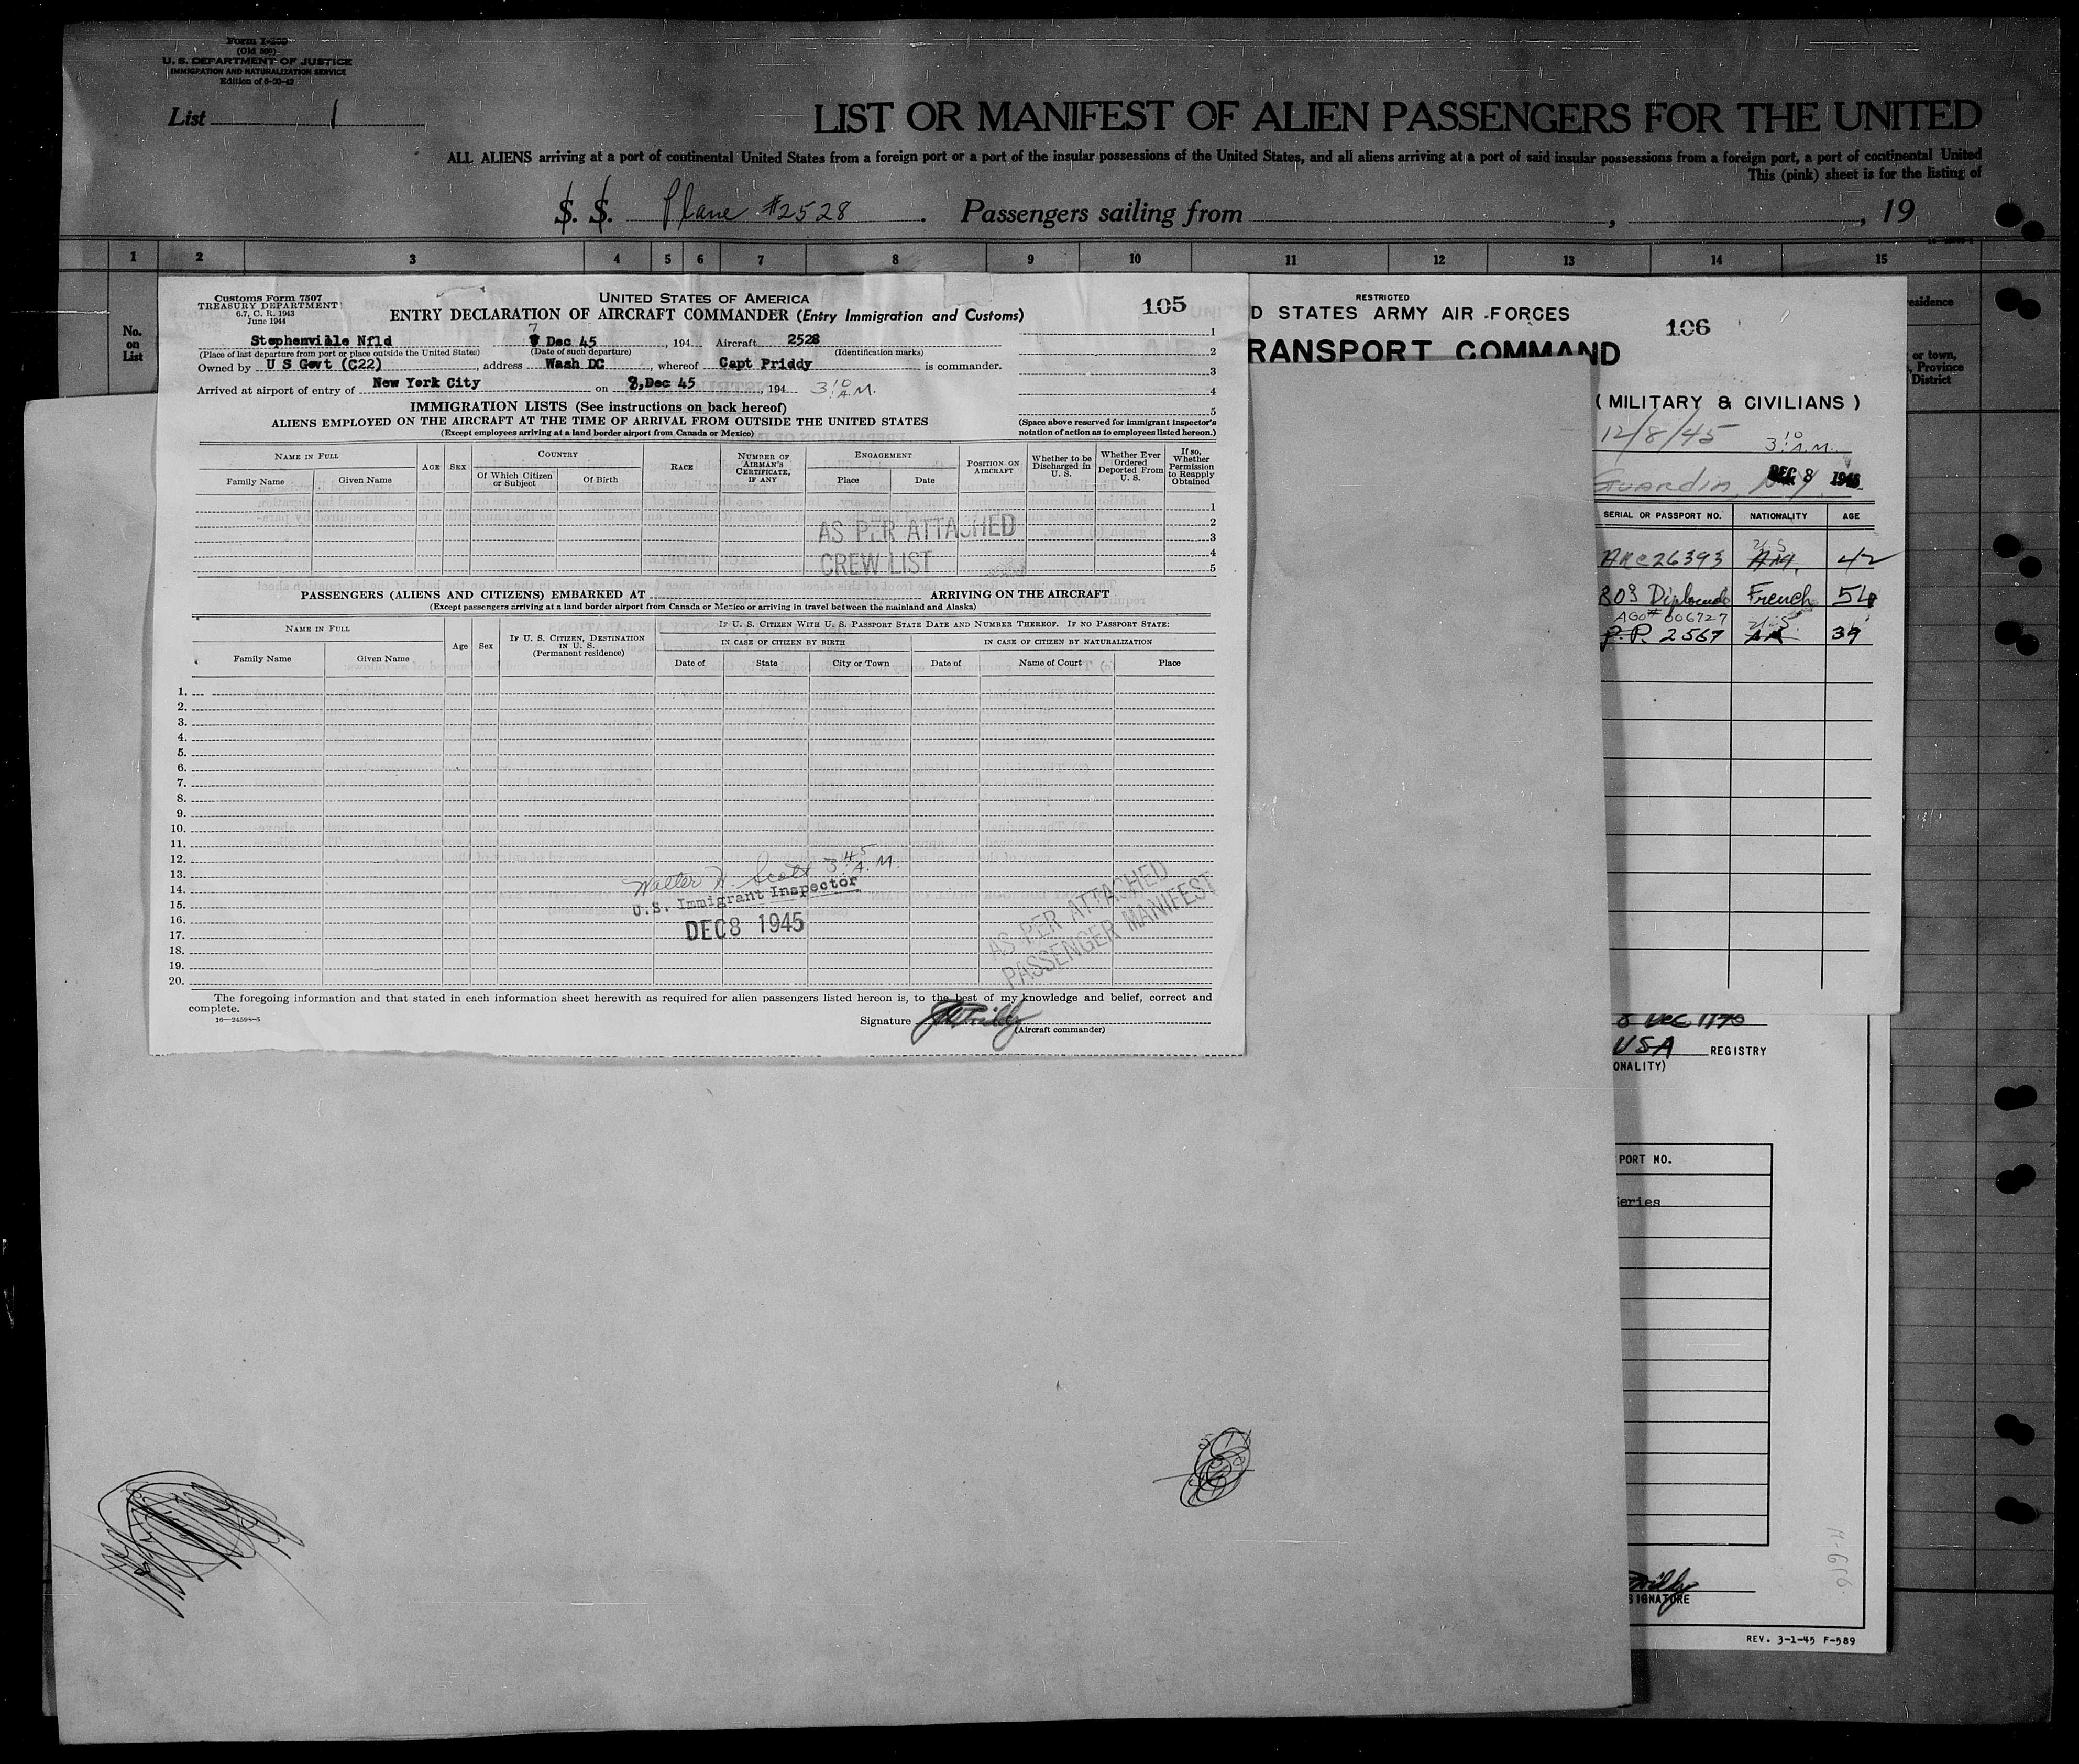 Form I-409
(Old 500)
U. S. DEPARTMENT OF JUSTICE
IMMIGRATION AND NATURALIZATION SERVICE
List 1
LIST OR MANIFEST OF ALIEN PASSENGERS FOR THE UNITED
ALL ALIENS arriving at a port of continental United States from a foreign port or a port of the insular possessions of the United States, and all aliens arriving at a port of said insular possessions from a foreign port, a port of continental United
This (pink) sheet is for the listing of
S. S. Plane #2528 . Passengers sailing from , , 19
1 2 3 4 5 6 7 8 9 10 11 12 13 14 15
No. on List
esidence
or town,
, Province
District
Customs Form 7507
TREASURY DEPARTMENT
6.7, C. R. 1943
June 1944
UNITED STATES OF AMERICA
105
ENTRY DECLARATION OF AIRCRAFT COMMANDER (Entry Immigration and Customs)
Stephenville Nfld 7 Dec 45 , 194 Aircraft 2528
(Place of last departure from port or place outside the United States) (Date of such departure) (Identification marks)
Owned by U S Govt (C22) , address Wash DC , whereof Capt Priddy is commander.
Arrived at airport of entry of New York City on 8,Dec 45 , 194 3:10 A.M.
1
2
3
4
5
IMMIGRATION LISTS (See instructions on back hereof)
ALIENS EMPLOYED ON THE AIRCRAFT AT THE TIME OF ARRIVAL FROM OUTSIDE THE UNITED STATES
(Except employees arriving at a land border airport from Canada or Mexico)
(Space above reserved for immigrant inspector's notation of action as to employees listed hereon.)
NAME IN FULL
Family Name Given Name
AGE SEX
COUNTRY
Of Which Citizen or Subject Of Birth
RACE
NUMBER OF AIRMAN'S CERTIFICATE, IF ANY
ENGAGEMENT
Place Date
POSITION ON AIRCRAFT
Whether to be Discharged in U. S.
Whether Ever Ordered Deported From U. S.
If so, Whether Permission to Reapply Obtained
1
2
3
4
5
AS PER ATTACHED
CREW LIST
PASSENGERS (ALIENS AND CITIZENS) EMBARKED AT ARRIVING ON THE AIRCRAFT
(Except passengers arriving at a land border airport from Canada or Mexico or arriving in travel between the mainland and Alaska)
NAME IN FULL
Family Name Given Name
Age Sex
IF U. S. CITIZEN, DESTINATION IN U. S.
(Permanent residence)
IF U. S. CITIZEN WITH U. S. PASSPORT STATE DATE AND NUMBER THEREOF. IF NO PASSPORT STATE:
IN CASE OF CITIZEN BY BIRTH IN CASE OF CITIZEN BY NATURALIZATION
Date of State City or Town Date of Name of Court Place
1.
2.
3.
4.
5.
6.
7.
8.
9.
10.
11.
12.
13.
14.
15.
16.
17.
18.
19.
20.
Walter H. Scott 3:45 A.M.
U.S. Immigrant Inspector
DEC 8 1945
AS PER ATTACHED
PASSENGER MANIFEST
The foregoing information and that stated in each information sheet herewith as required for alien passengers listed hereon is, to the best of my knowledge and belief, correct and
complete.
16—24598-5
Signature
(Aircraft commander)
RESTRICTED
D STATES ARMY AIR FORCES
106
RANSPORT COMMAND
( MILITARY & CIVILIANS )
12/8/45 3:10 A.M.
Guardia N.Y. DEC 8 1945
SERIAL OR PASSPORT NO. NATIONALITY AGE
U.S.
ARC26393 Am. 42
803 Diplomatic French 54
AGO# 006727 U.S.
P.P. 2567 39
USA REGISTRY
ONALITY)
PORT NO.
eries
SIGNATURE
REV. 3-1-45 F-589